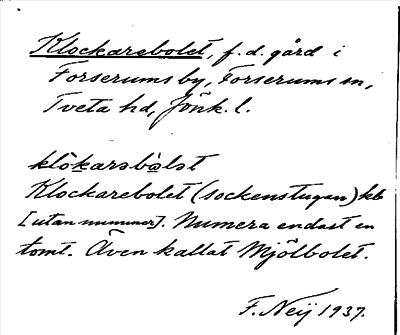 Klockarebolet, f. d. gård i
Forserums by, Forserums sn,
Tveta hd, Jönk. l.
klòkarəbòlət
Klockarebolet (sockenstugan) kb
[utan nummer]. Numera endast en
tomt. Även kallat Mjölbolet.
F. Neij 1937.